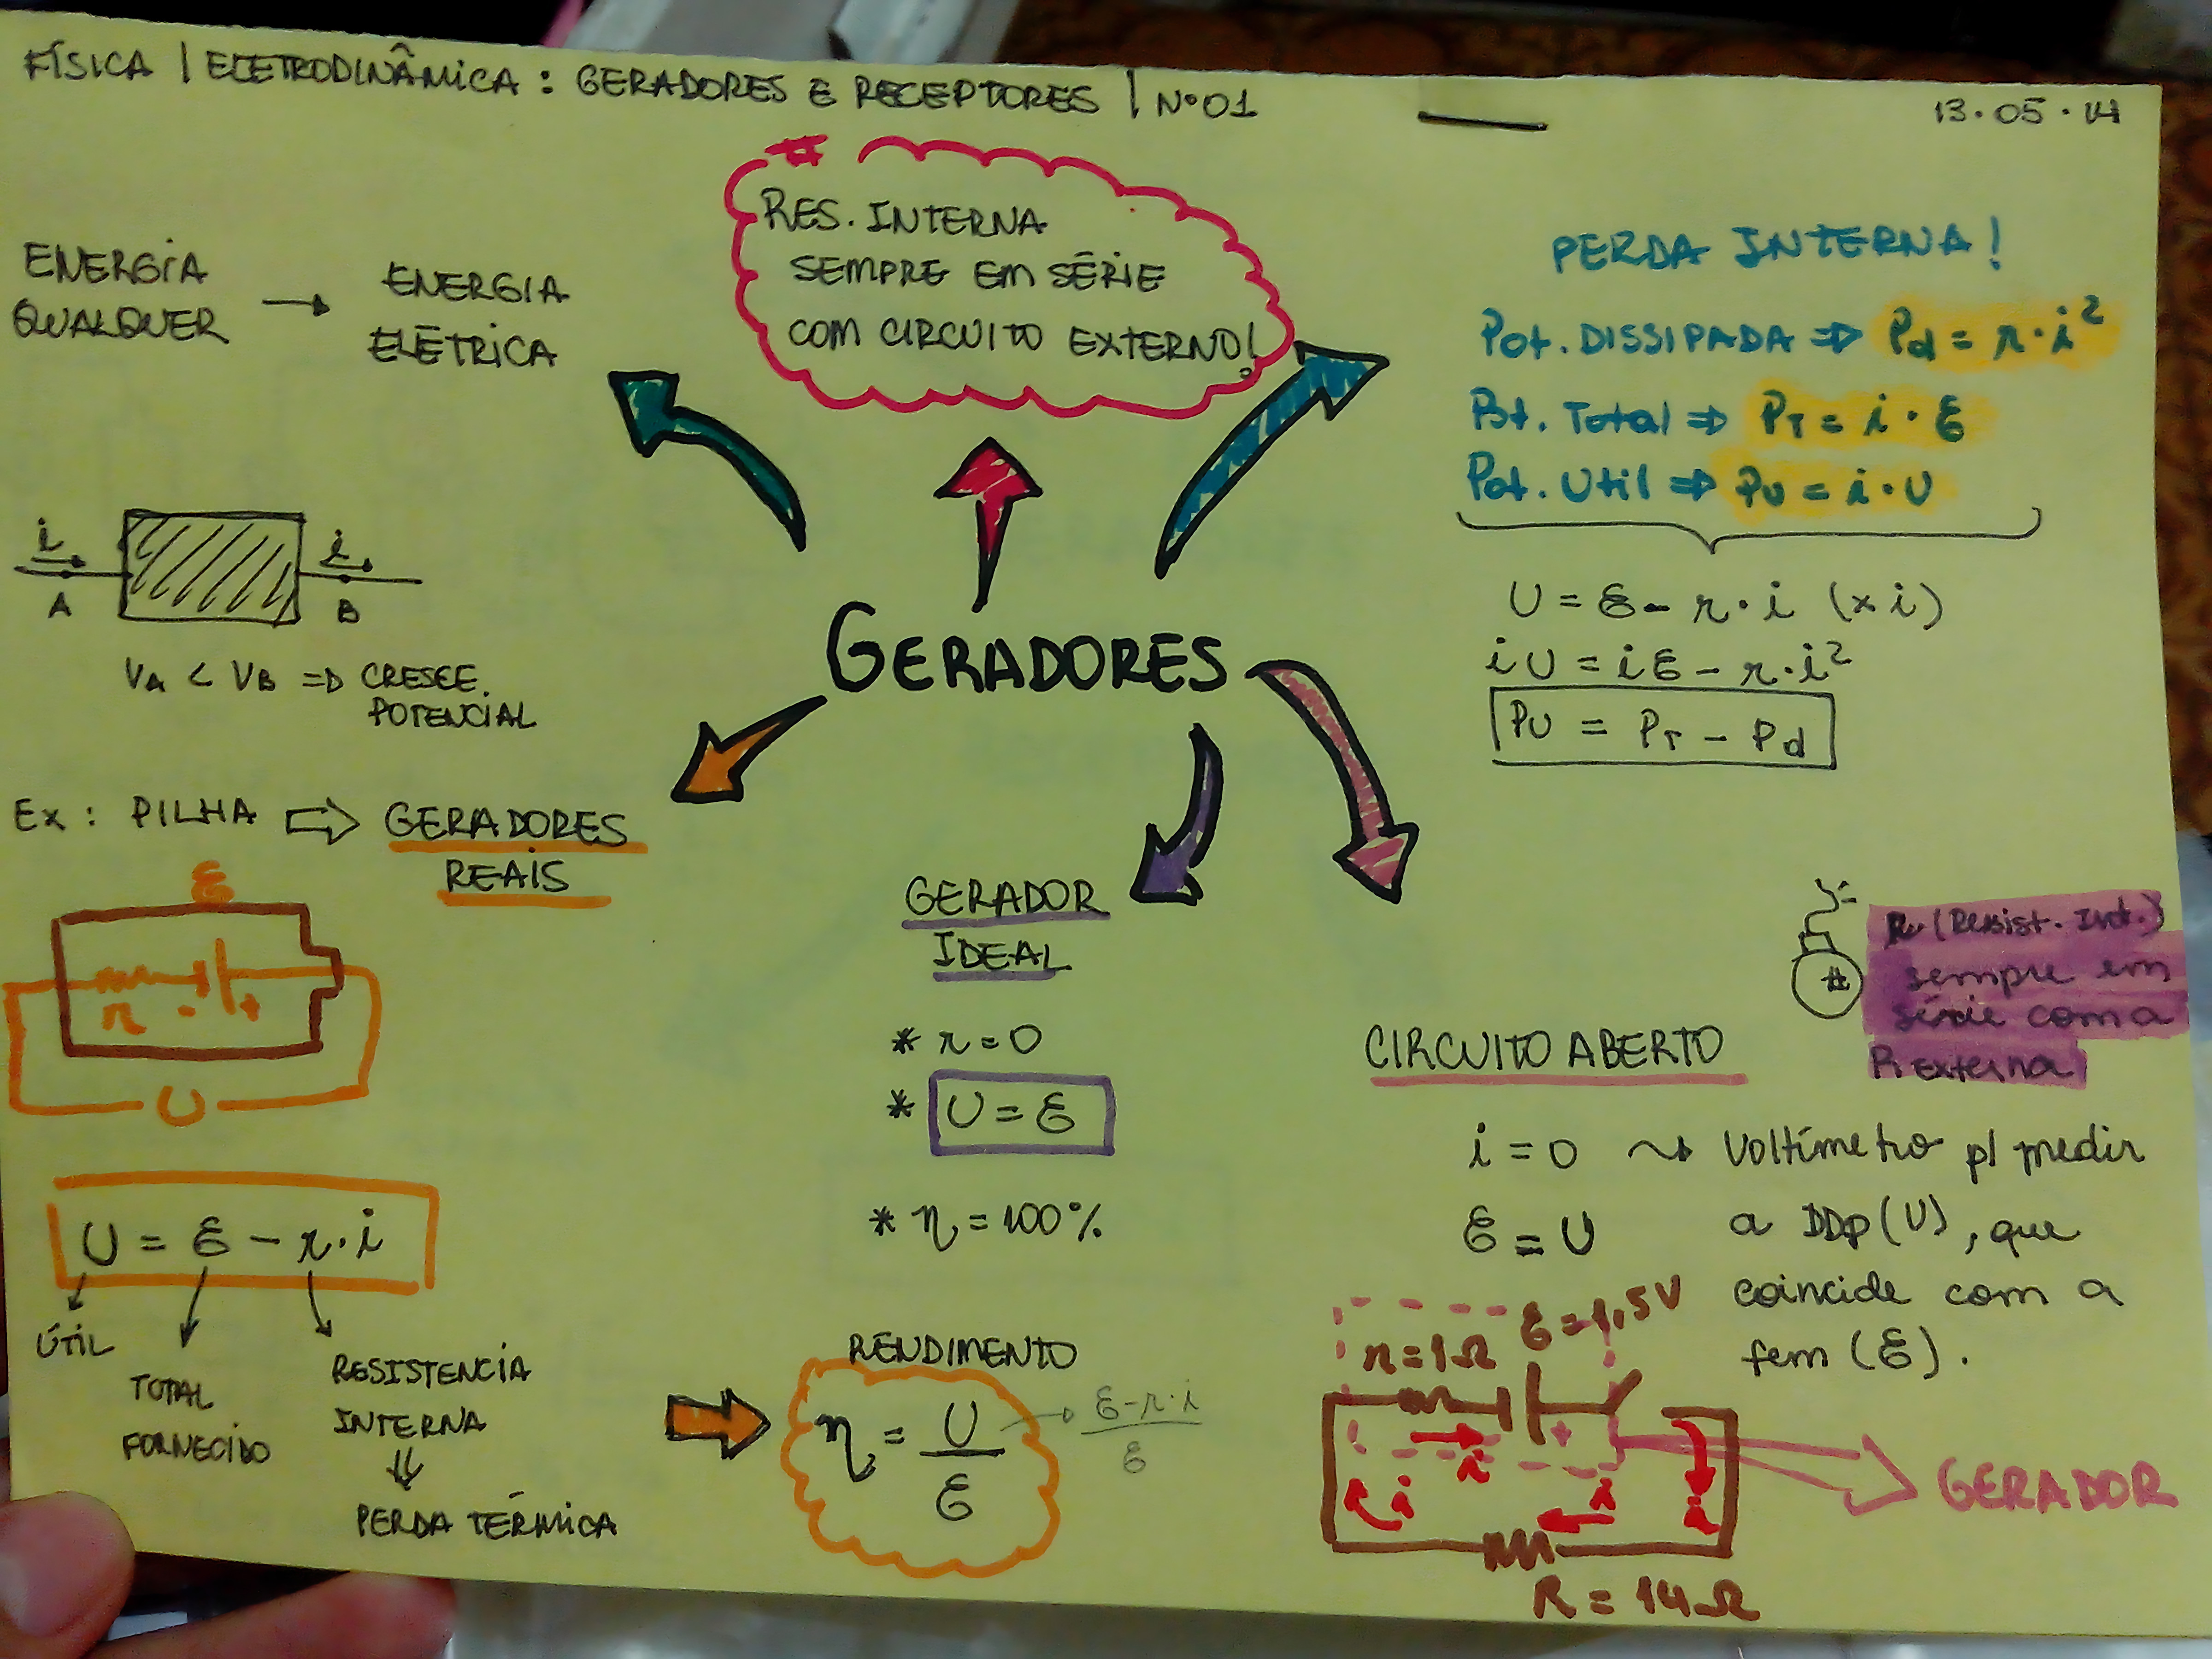 FÍSICA | ELETRODINÂMICA : GERADORES E RECEPTORES | Nº01
13.05.14
ENERGIA
QUALQUER → ENERGIA
ELÉTRICA
#
RES. INTERNA
SEMPRE EM SÉRIE
COM CIRCUITO EXTERNO!
PERDA INTERNA!
Pot. DISSIPADA ⇒ Pd = r·i²
Pot. Total ⇒ PT = i·ε
Pot. Util ⇒ PU = i·U
U = ε - r·i (x i)
iU = iε - r·i²
PU = PT - Pd
i
A
i
B
VA < VB ⇒ CRESCE
POTENCIAL
GERADORES
EX: PILHA ⇨ GERADORES
REAIS
ε
r - +
U
U = ε - r·i
ÚTIL
TOTAL
FORNECIDO
RESISTENCIA
INTERNA
⇓
PERDA TÉRMICA
GERADOR
IDEAL
* r = 0
* U = ε
* η = 100%
RENDIMENTO
η = U/ε → ε-r·i/ε
#
r (Resist. Int.)
sempre em
série com a
R externa
CIRCUITO ABERTO
i = 0 ↝ Voltímetro p/ medir
a DDp (U), que
coincide com a
fem (ε).
ε = U
ε = 1,5V
r = 1Ω
- +
i
i
i
i
R = 14Ω
GERADOR